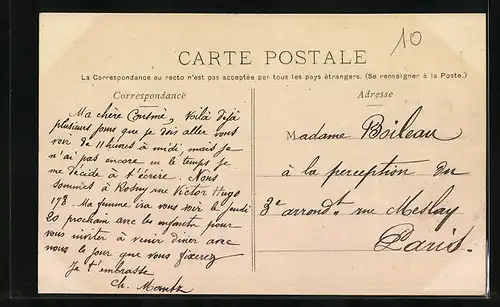 10
CARTE POSTALE
La Correspondance au recto n'est pas acceptée par tous les pays étrangers. (Se renseigner à la Poste.)
Correspondance
Ma chère Cousine, Voilà déjà
plusieurs jours que je dois aller vous
voir de 11 heures à midi, mais je
n'ai pas encore eu le temps je
me décide à t'écrire. Nous
sommes à Rosny rue Victor Hugo
178. Ma femme ira vous voir le jeudi
20 prochain avec les enfants pour
vous inviter à venir diner avec
nous le jour que vous fixerez
Je t'embrasse
Ch. Mantz
Adresse
Madame Boileau
à la perception du
3e arrondt rue Meslay
Paris.